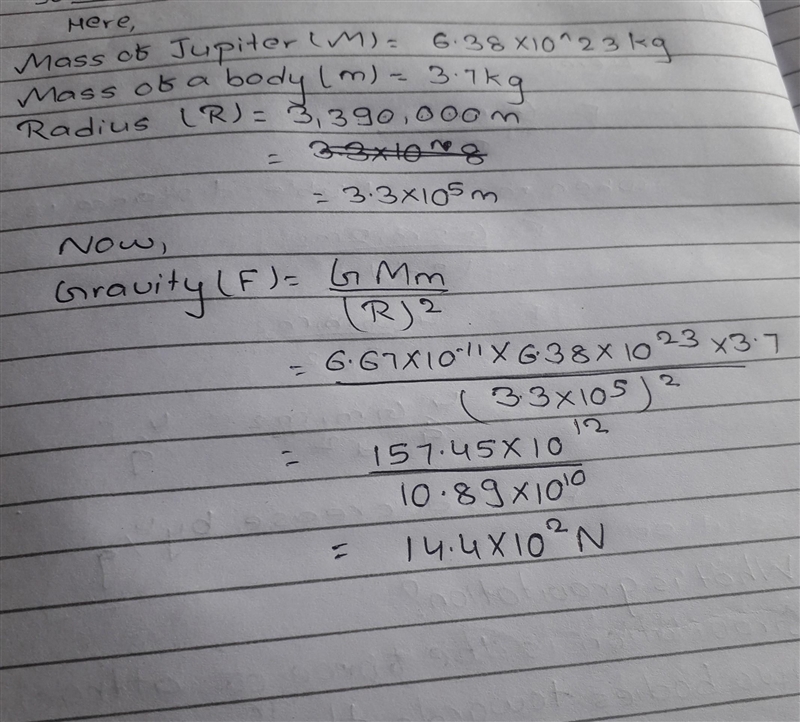 Here,
Mass of Jupiter (M) = 6.38 x10^23 kg
Mass of a body (m) = 3.7kg
Radius (R) = 3,390,000m
= 3.3x10^8
= 3.3x10⁵m
Now,
Gravity (F) = GMm/(R)²
= 6.67x10⁻¹¹ x 6.38 x 10²³ x3.7/(3.3x10⁵)²
= 157.45x10¹²/10.89x10¹⁰
= 14.4x10²N